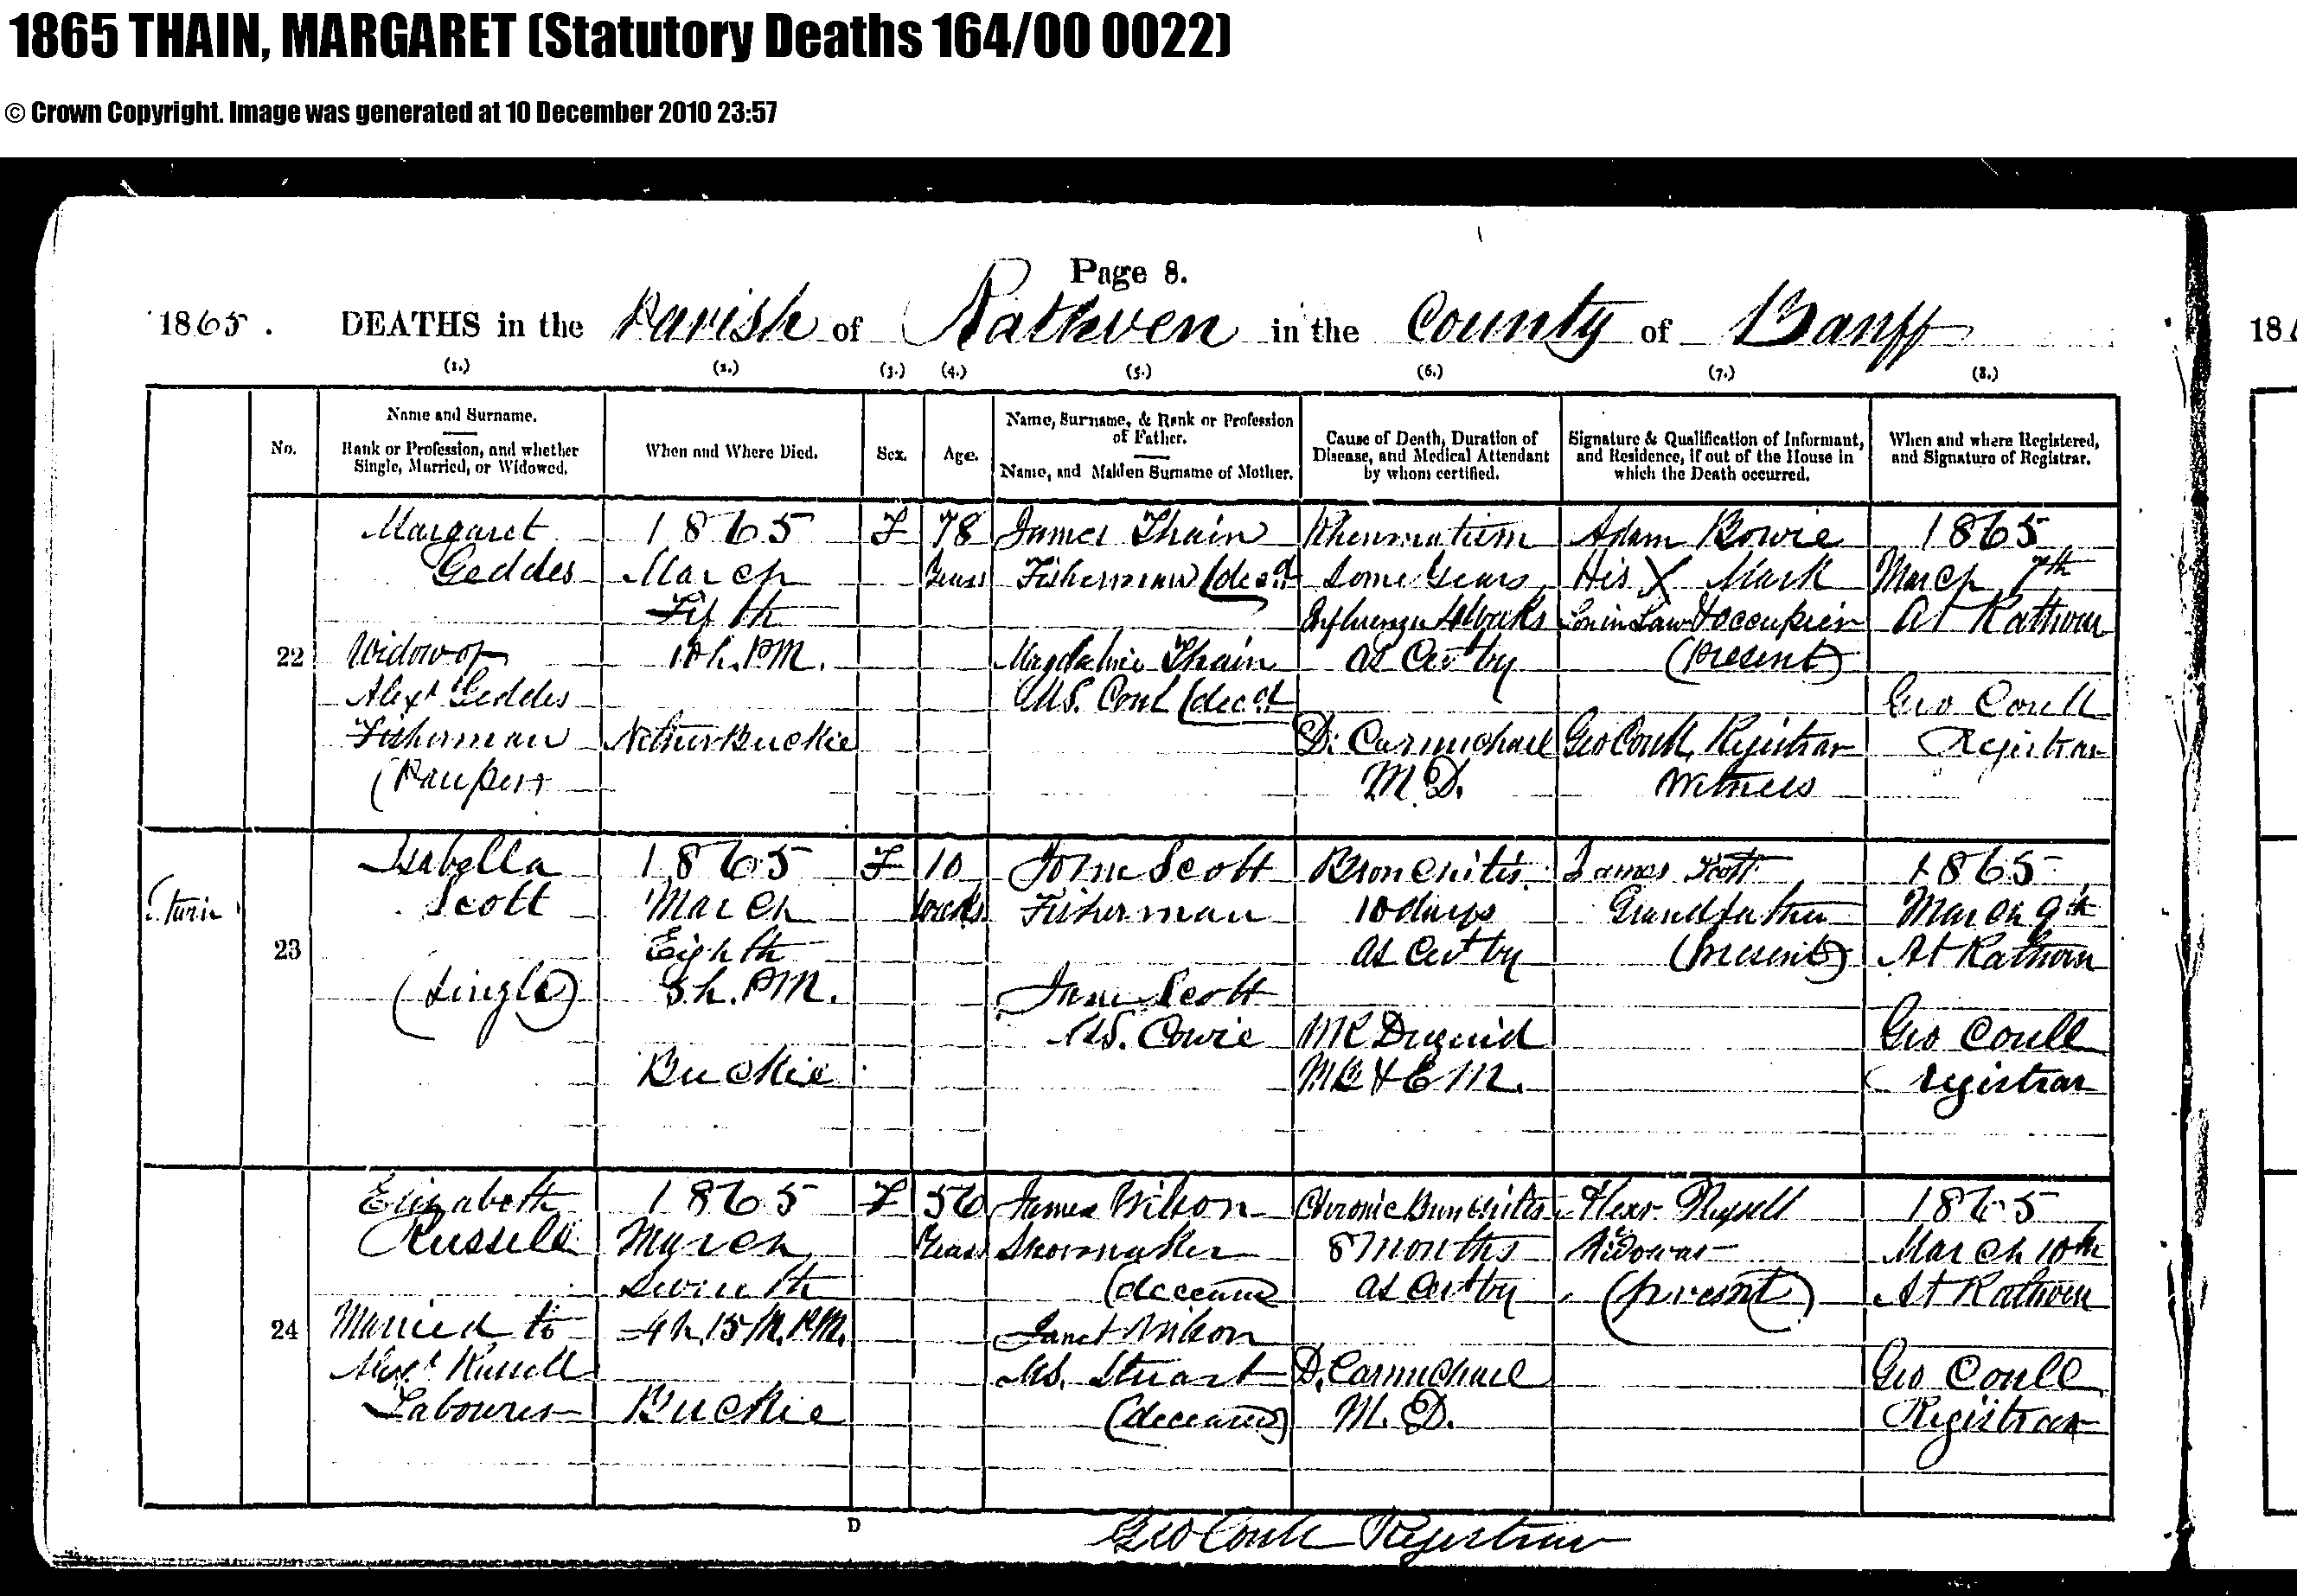 1865 THAIN, MARGARET (Statutory Deaths 164/00 0022)
© Crown Copyright. Image was generated at 10 December 2010 23:57
Page 8.
1865. DEATHS in the Parish of Rathven in the County of Banff
18
(1.) (2.) (3.) (4.) (5.) (6.) (7.) (8.)
No.
Name and Surname.
Rank or Profession, and whether
Single, Married, or Widowed.
When and Where Died.
Sex.
Age.
Name, Surname, & Rank or Profession
of Father.
Name, and Maiden Surname of Mother.
Cause of Death, Duration of
Disease, and Medical Attendant
by whom certified.
Signature & Qualification of Informant,
and Residence, if out of the House in
which the Death occurred.
When and where Registered,
and Signature of Registrar.
22
Margaret
Geddes
Widow of
Alexr Geddes
Fisherman
(Pauper)
1865
March
Fifth
10 h. P.M.
Nether Buckie
F
78
Years
James Thain
Fisherman (decd
Magdalene Thain
MS. Coul (decd
Rheumatism
Some Years
Influenza 4 Weeks
as Cert by
D. Carmichael
M.D.
Adam Bowie
His X Mark
Son in Law & occupier
(present)
Geo Coull, Registrar
Witness
1865
March 7th
At Rathven
Geo Coull
Registrar
(twin
23
Isabella
Scott
(Single)
1865
March
Eighth
3 h. P.M.
Buckie
F
10
Weeks
John Scott
Fisherman
Jane Scott
MS. Cowie
Bronchitis
10 days
as Cert by
Duguid
James Scott
Grandfather
(present)
1865
March 9th
At Rathven
Geo Coull
registrar
24
Elizabeth
Russell
Married to
Alexr Russell
Labourer
1865
March
Seventh
4 h. 15 M. P.M.
Buckie
F
56
Years
James Wilson
Shoemaker
(deceased
Janet Wilson
MS. Stuart
(deceased)
Chronic Bronchitis
8 months
as Cert by
D. Carmichael
M.D.
Alexr. Russell
Widower
(present)
1865
March 10th
At Rathven
Geo Coull
Registrar
D
Geo Coull Registrar